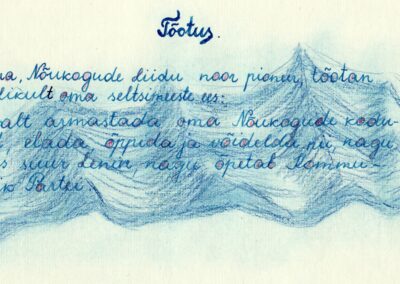 Tõotus.
na, Nõukogude Liidu noor pioneer, tõotan
likult oma seltsimeeste ees:
alt armastada oma Nõukogude kodu-
, elada, õppida ja võidelda nii, nagu
s suur Lenin, nagu õpetab Kommu-
k Partei